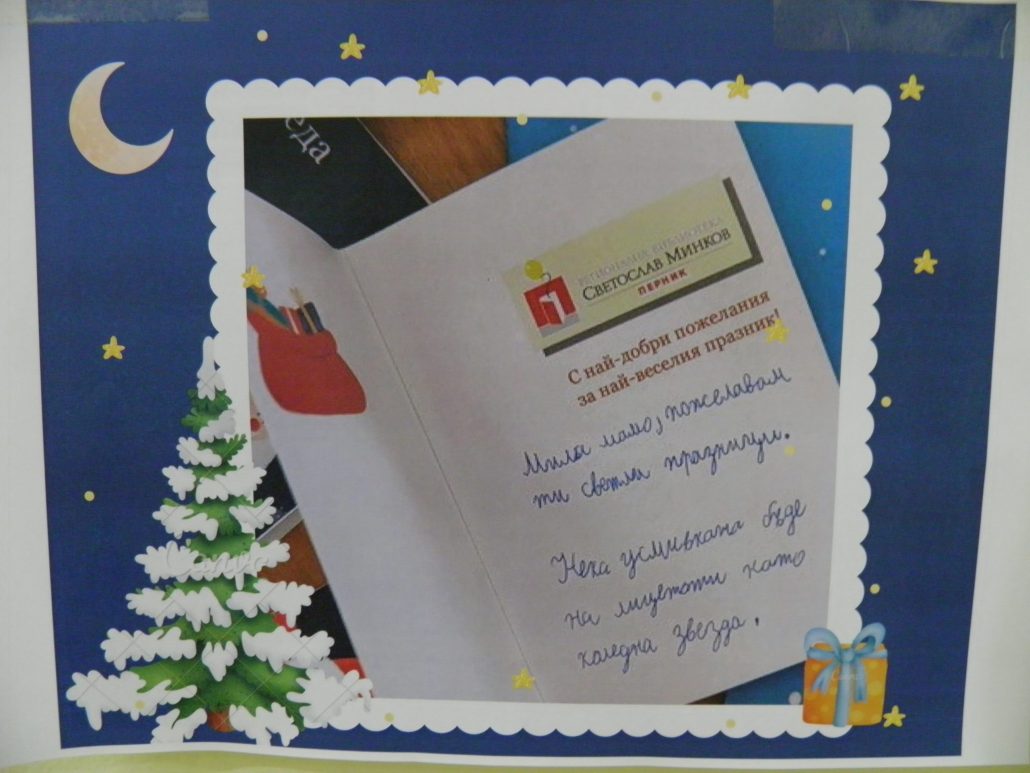 еда
РЕГИОНАЛНА БИБЛИОТЕКА
СВЕТОСЛАВ МИНКОВ
ПЕРНИК
С най-добри пожелания
за най-веселия празник!
Мила мамо, пожелавам
ти светли празници.
Нека усмивката бъде
на лицето ти като
коледна звезда.